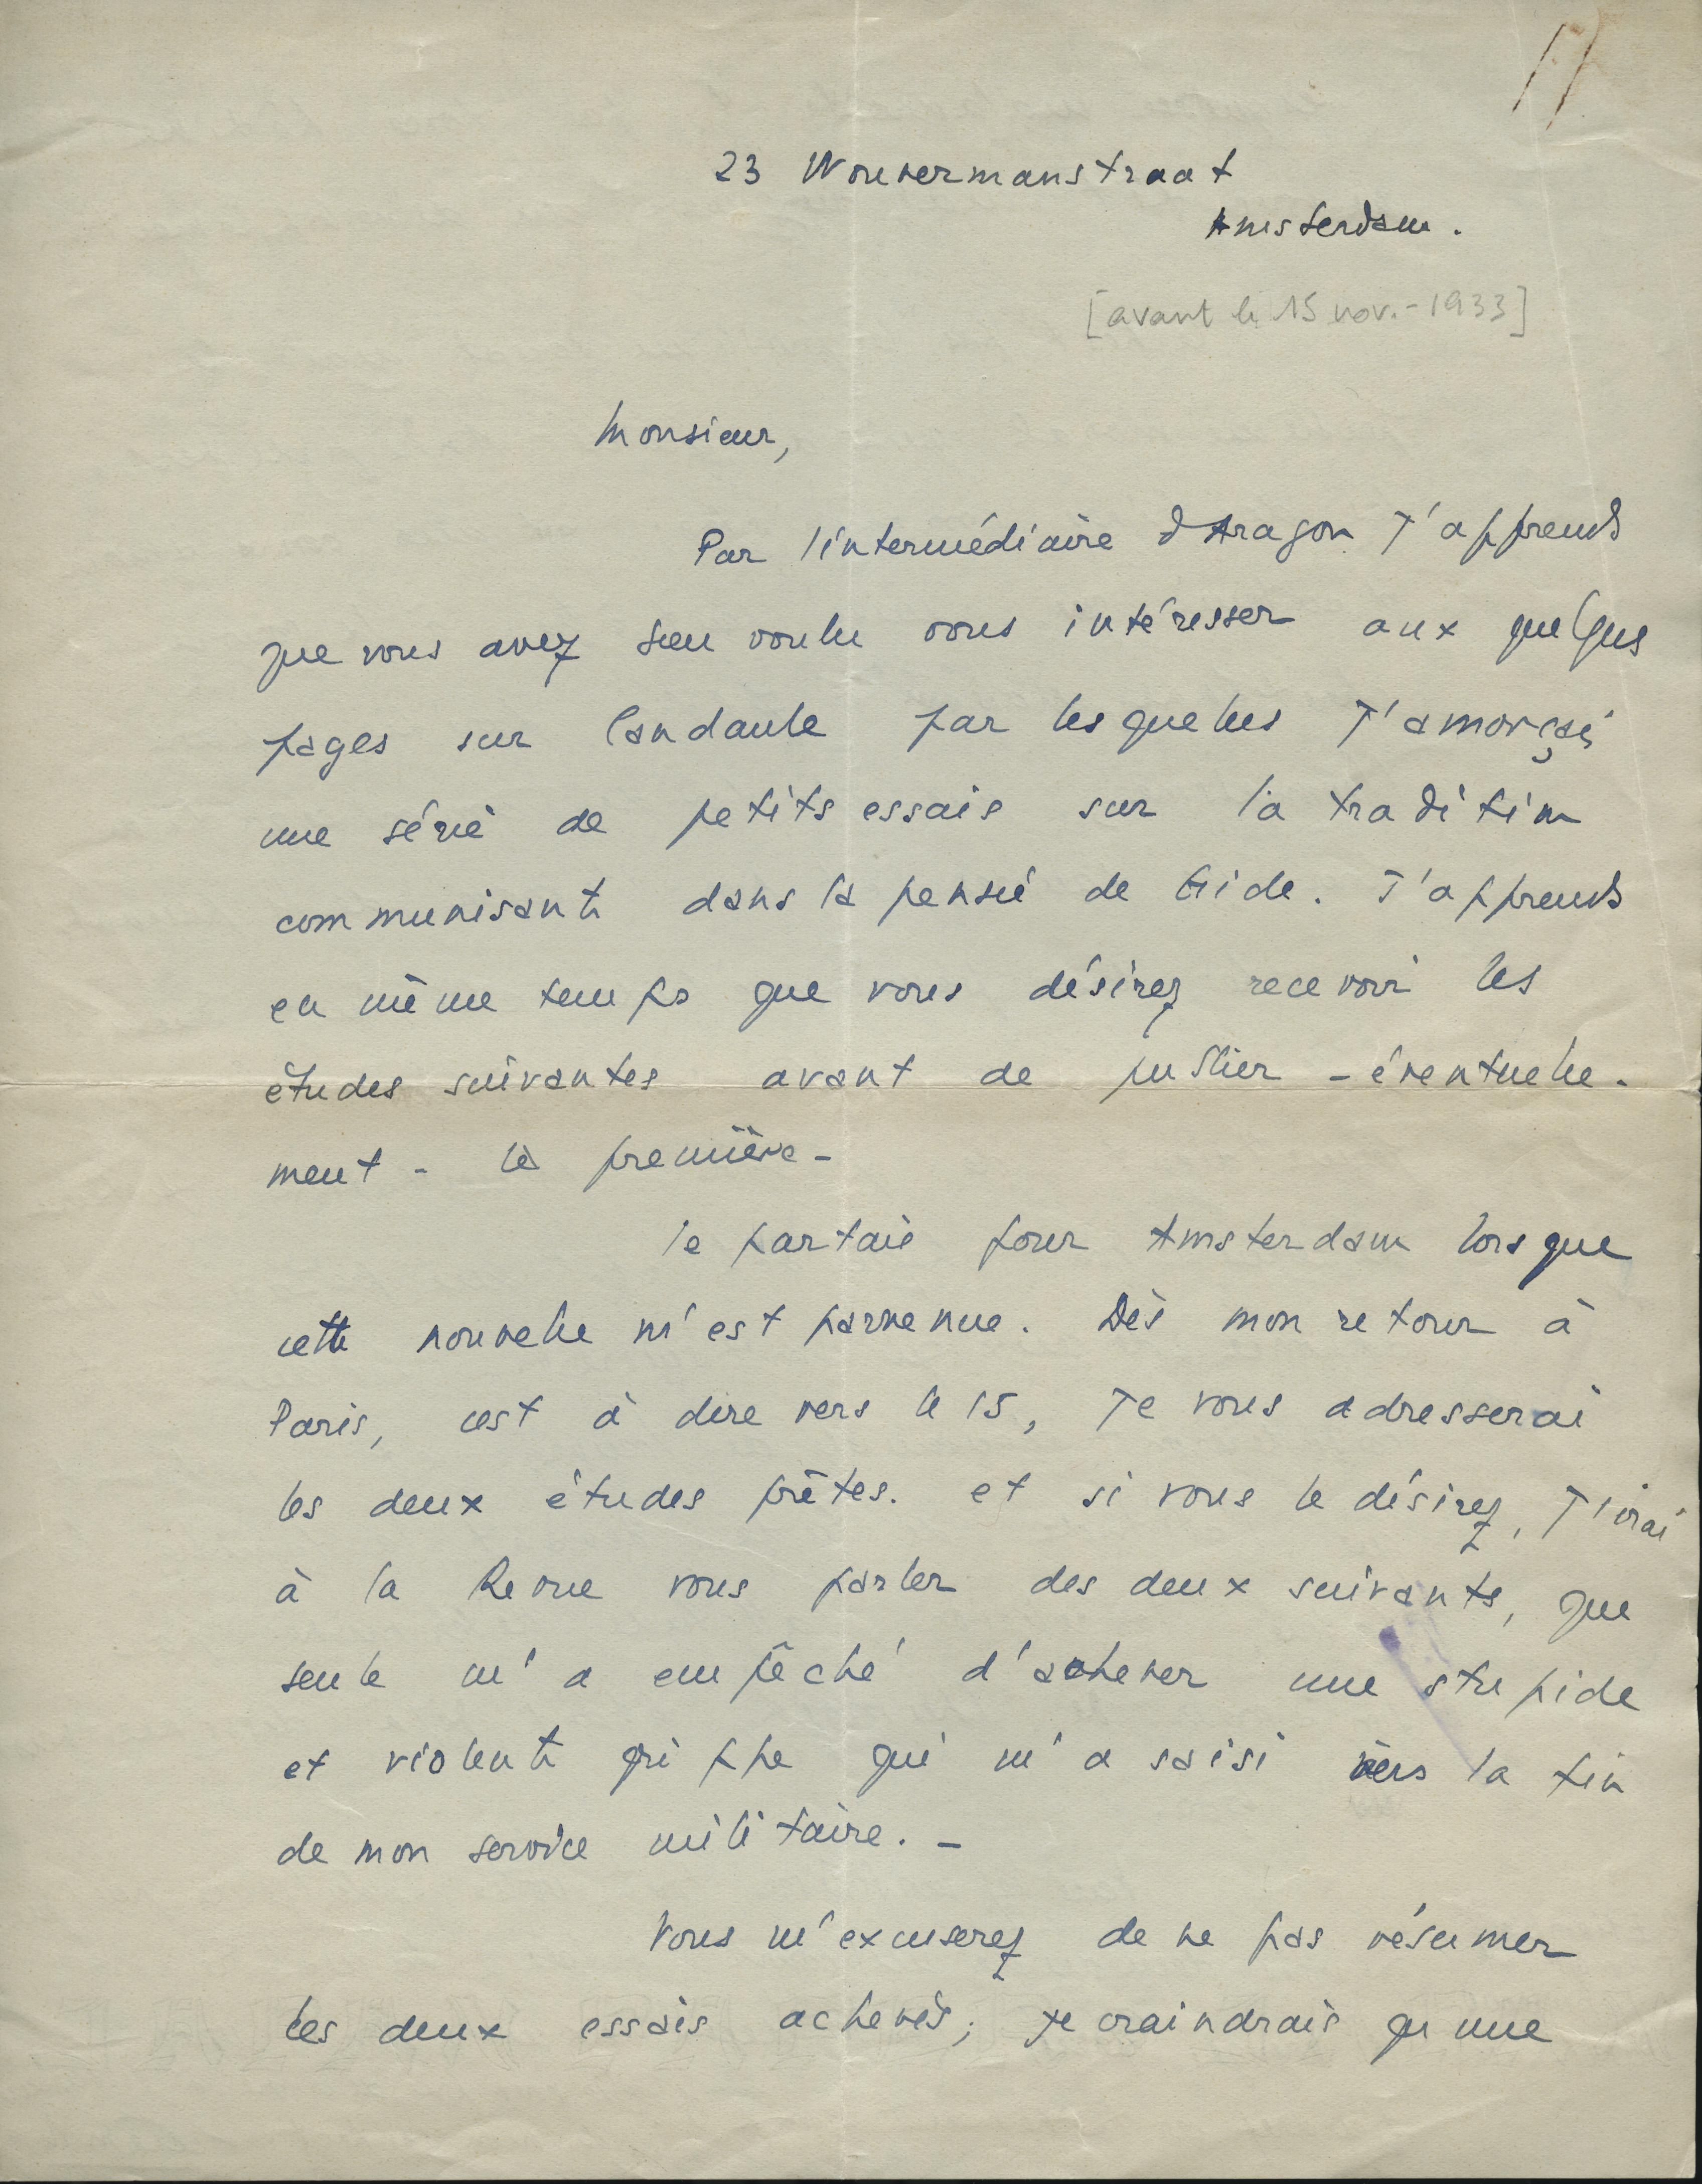 17
23 Wouvermanstraat
Amsterdam.
[avant le 15 nov. - 1933]
Monsieur,
Par l'intermédiaire d'Aragon j'apprends
que vous avez bien voulu vous intéresser aux quelques
pages sur Candaule par lesquelles j'amorçai
une série de petits essais sur la tradition
communisante dans la pensée de Gide. J'apprends
en même temps que vous désirez recevoir les
études suivantes avant de publier - éventuelle-
ment - la première -
Je partais pour Amsterdam lorsque
cette nouvelle m'est parvenue. Dès mon retour à
Paris, c'est à dire vers le 15, je vous adresserai
les deux études prêtes. et si vous le désirez, j'irai
à la Revue vous parler des deux suivants, que
seule m'a empêché d'achever une stupide
et violente grippe qui m'a saisi vers la fin
de mon service militaire. -
Vous m'excuserez de ne pas résumer
les deux essais achevés; je craindrais qu'une